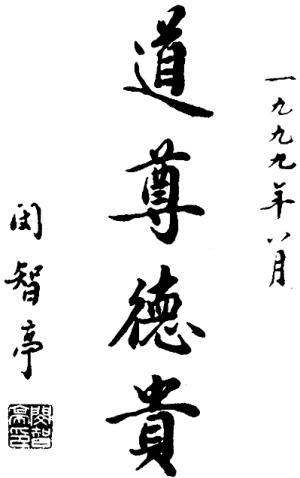 一九九九年八月
道尊德貴
闵智亭
閔智亭印